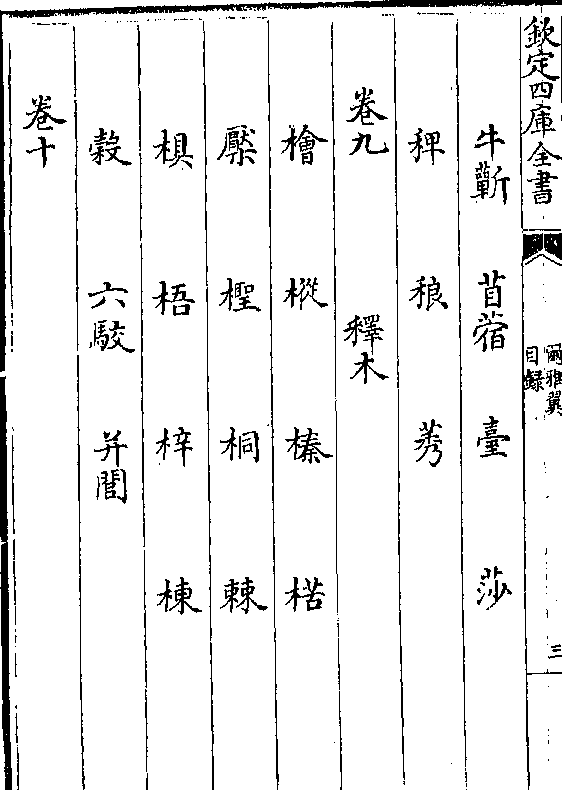 欽定四庫全書
爾雅翼
目録
三
牛蘄 苜蓿 臺 莎
稗 稂 莠
卷九 釋木
檜 樅 榛 楛
檿 檉 桐 棘
椇 梧 梓 楝
榖 六駮 并閭
卷十